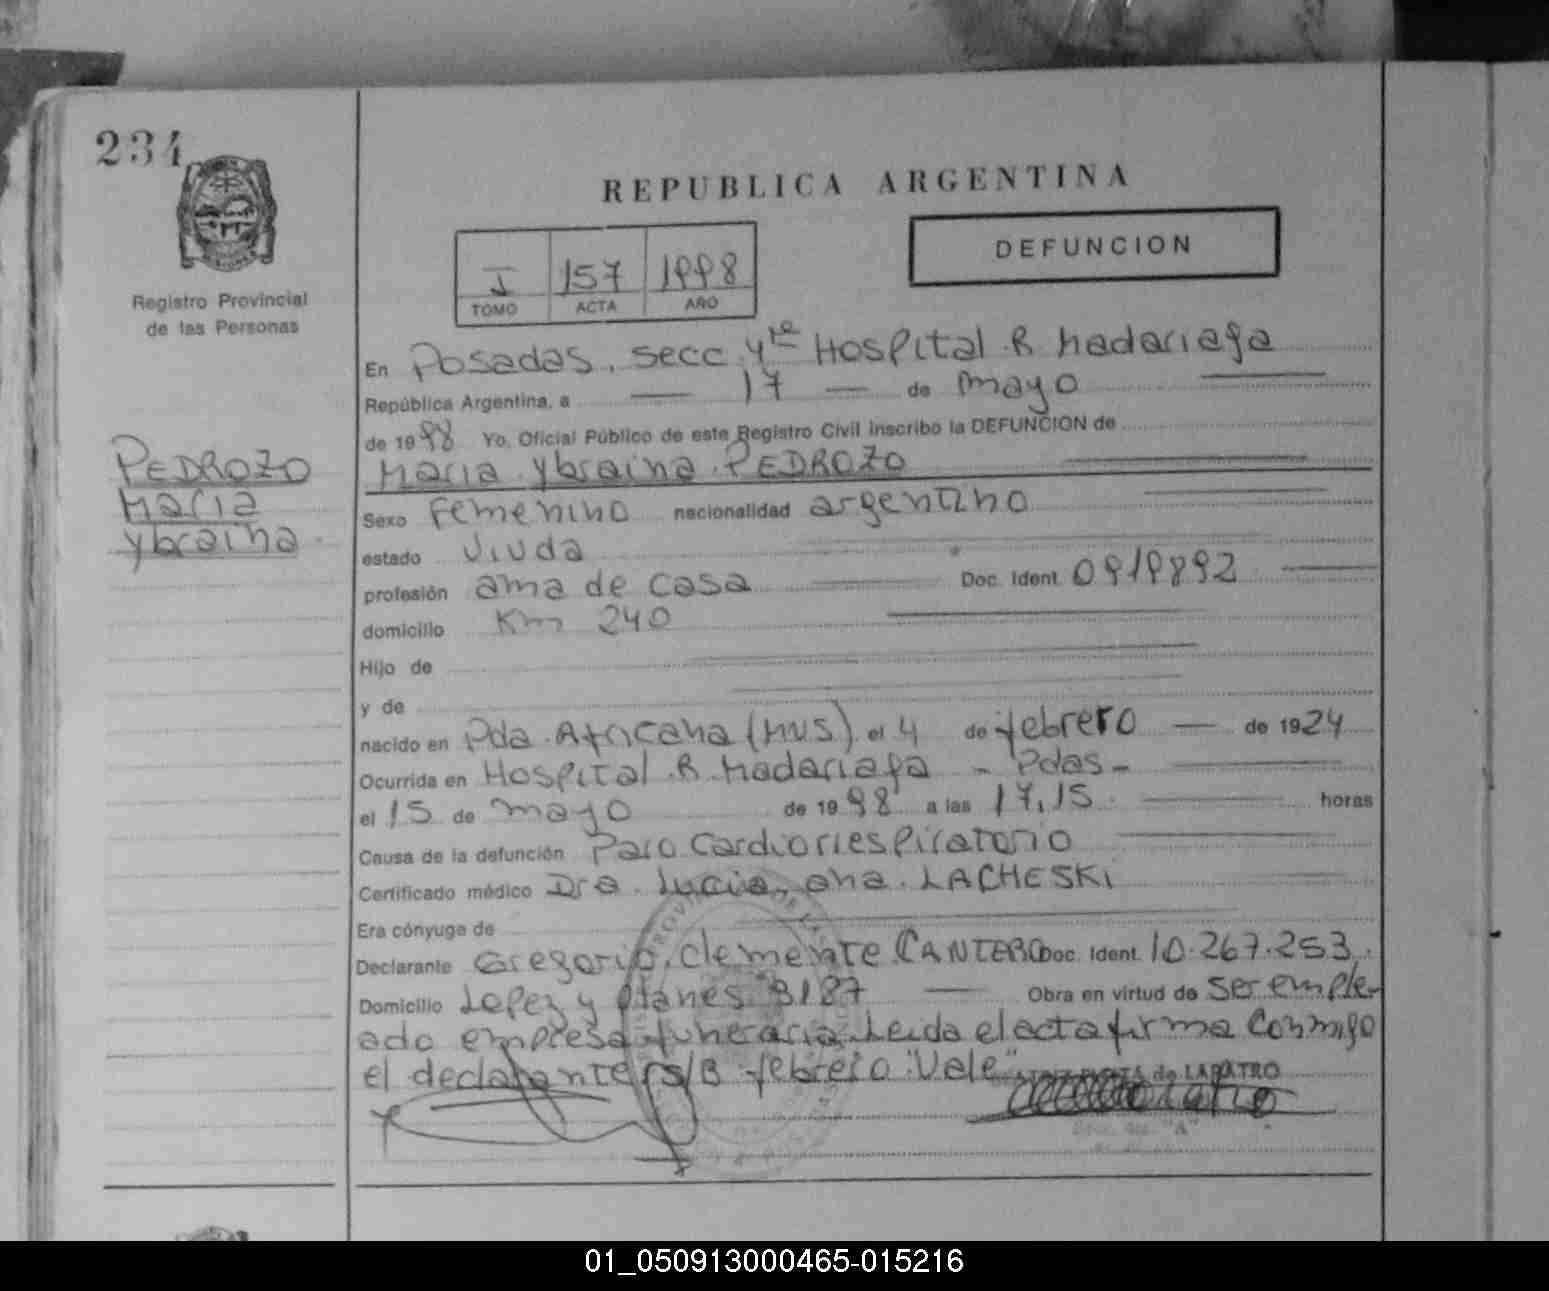 234
REPUBLICA ARGENTINA
DEFUNCION
I 157 1998
TOMO ACTA AÑO
Registro Provincial
de las Personas
PEDROZO
Maria
Ybraina
En Posadas, secc 4ta Hospital R Madariaga
República Argentina, a 17 de mayo
de 1998 Yo, Oficial Público de este Registro Civil inscribo la DEFUNCION de
Maria Ybraina PEDROZO
Sexo Femenino nacionalidad argentino
estado Viuda
profesión ama de casa Doc. Ident. 0919892
domicilio Km 240
Hijo de
y de
nacido en Pda. Africana (Mns) el 4 de febrero de 1924
Ocurrida en Hospital R Madariaga - Pdas -
el 15 de mayo de 1998 a las 17,15 horas
Causa de la defunción Paro Cardiorrespiratorio
Certificado médico Dra. Lucia, ana LACHESKI
Era cónyuge de
Declarante Gregorio, Clemente CANTERO Doc. Ident. 10.267.253
Domicilio Lopez y Planes 3187 Obra en virtud de ser emple-
ado empresa funeraria. Leida el acta firma conmigo
el declarante s/B febrero "Vale"
de LAPATRO
"A"
01_050913000465-015216